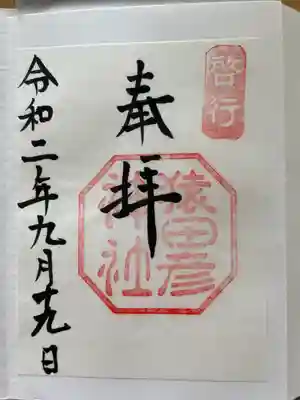 啓行
奉拝
猿田彦
神社
令和二年九月十九日